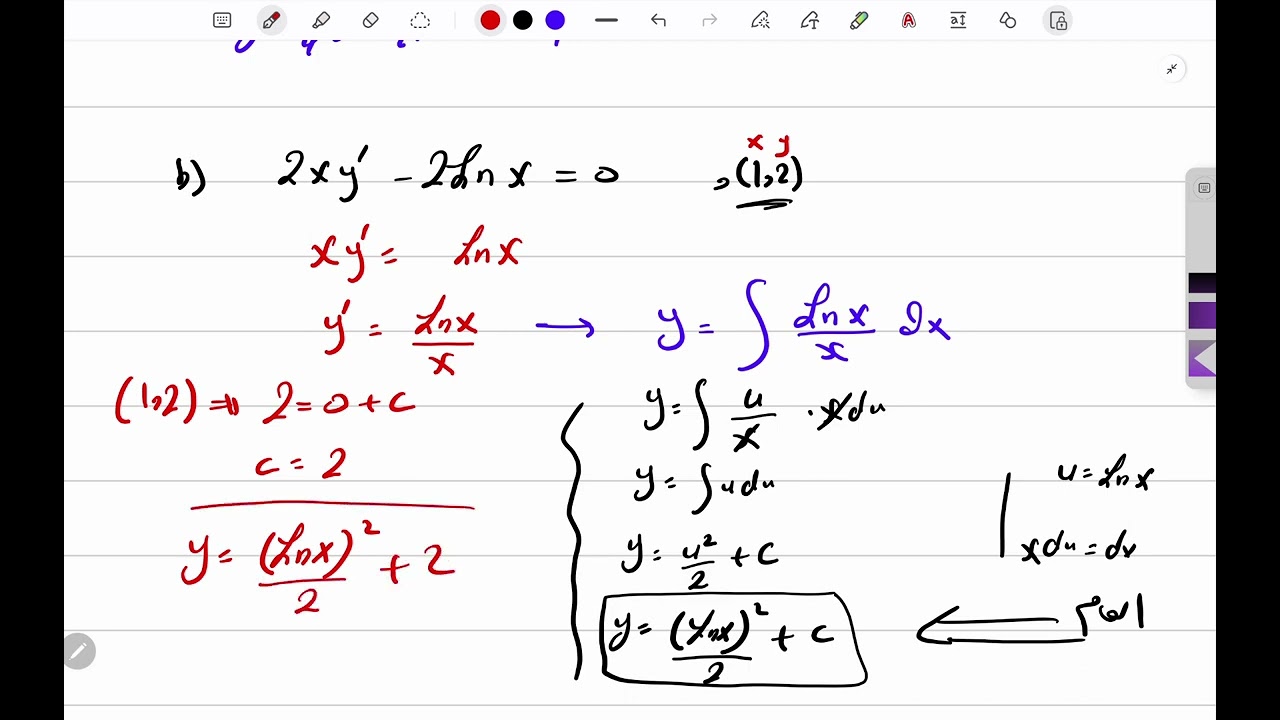 x y
b) 2xy' - 2Ln x = 0 , (1,2)
xy' = Ln x
y' = Ln x / x → y = ∫ Ln x / x dx
(1,2) ⇒ 2 = 0 + c
c = 2
y = (Ln x)² / 2 + 2
y = ∫ u / x · x du
y = ∫ u du
y = u² / 2 + C
y = (Ln x)² / 2 + C
u = Ln x
x du = dx